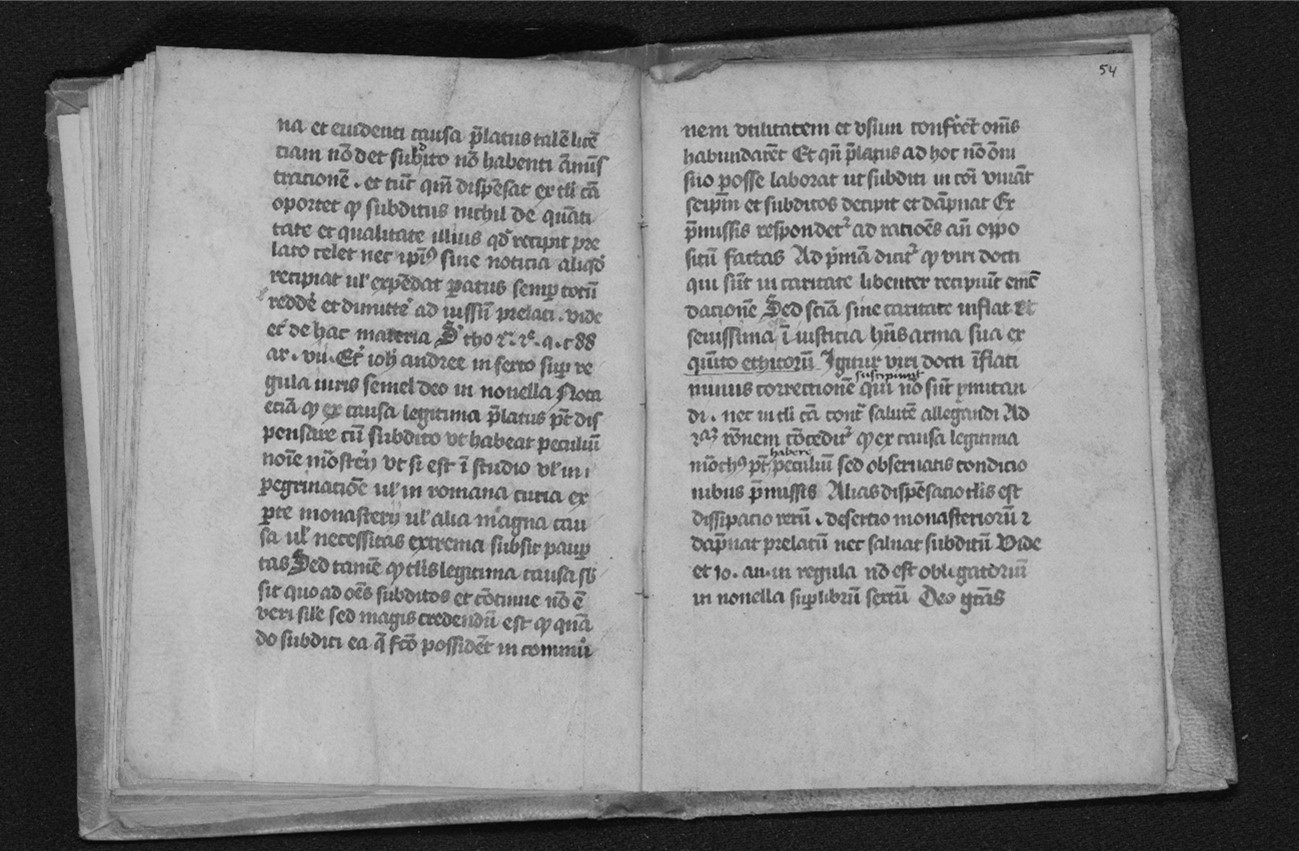 na et euidenti causa p̄latus talē licē
ciam nō det subdito nō habenti āmīs
tracionē . et tūc qm̄ dispēsat ex tli cā
oportet ꝙ subditus nichil de quāti
tate et qualitate illius qd̄ recipit pre
lato celet nec ip̄iꝰ sine noticia aliqd̄
recipiat ul̓ expēdat ꝑatus semꝑ totū
redde᷑ et dimitte᷑ ad iussū prelati . vide
et̄ de hac materia S tho 2ª 2ᵉ . q . c88
ar . vii . Et̄ ioh̄ andree in sexto suꝑ re
gula iuris semel deo in nouella Nota
eciā ꝙ ex causa legitima p̄latus pt̄ dis
pensare cū subdito vt habeat peculiū
noīe mōsterij vt si est ī studio vl̓ in i
ꝑegrinatiōe ul̓ in romana curia ex
ꝑte monasterij ul̓ alia magna cau
sa ul̓ necessitas extrema subsit pauꝑ
tas Sed tamē ꝙ tlis legitima causa sb̄
sit quo ad oēs subditos et cōtinue nō ē
veri sil̓e sed magis credendū est ꝙ quā
do subditi ea q̄ sc̄o possidēt in commu᷑
54
nem vtilitatem et vsum confer᷑et oms̄
habundarēt Et qn̄ p̄latus ad hoc nō ōni
suo posse laborat ut subditi in cōi viuāt
seipm̄ et subditos decipit et dāpnat Ex
p̄missis respondet᷑ ad ratiōēs añ oppo
situ᷑ factas Ad p̓mā dicit᷑ ꝙ viri docti
qui sūt in caritate libenter recipiūt emē
dacionē Sed sciā sine caritate inflat Et
seuissima ī iusticia hn̄s arma sua ex
quīto ethicorū Igitur viri docti īflati
suscipiunt
minus correctionē qui nō sūt ꝑmutan
di . nec in tli cā contᷓ salutē allegandi Ad
2ᵃᵐ rōnem cōcedit᷑ ꝙ ex causa legitima
habere
mōchꝰ pt̄ peculiū sed obseruatis condicio
nibus p̄missis Alias dispēsacio tlis est
dissipacio rerū . desertio monasteriorū ⁊
dap̄nat prelatū nec saluat subditū Vide
et io . an . in regula nō est obligatoriū
in nouella suꝑ librū sextū Deo grās